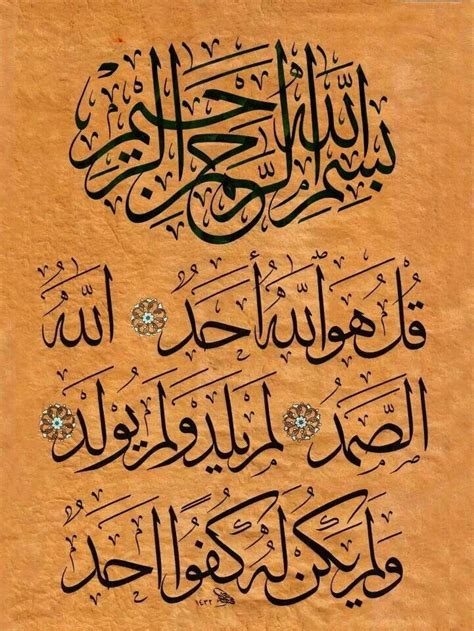 بِسْمِ اللَّهِ الرَّحْمَنِ الرَّحِيمِ
قُلْ هُوَ اللَّهُ أَحَدٌ اللَّهُ
الصَّمَدُ لَمْ يَلِدْ وَلَمْ يُولَدْ
وَلَمْ يَكُنْ لَهُ كُفُوًا أَحَدٌ
١٤٣٢